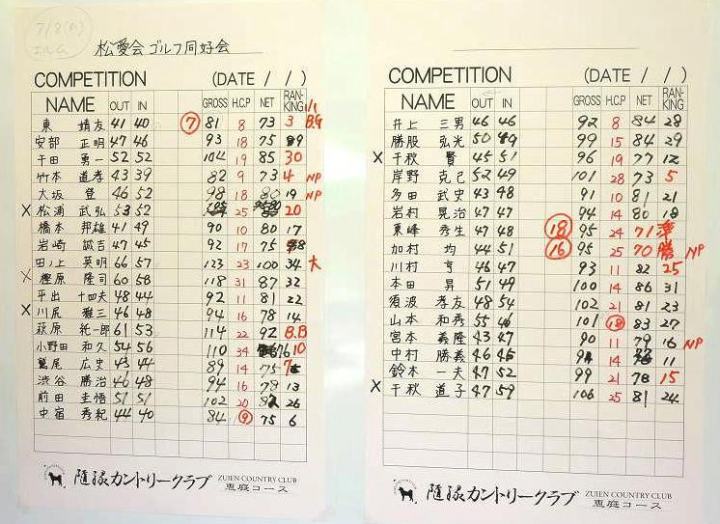 7/8
松愛会ゴルフ同好会
COMPETITION (DATE / / )
NAME OUT IN GROSS H.C.P NET RANKING
東 靖友 41 40 ⑦ 81 8 73 3 B.G
安部 正明 47 46 93 18 75
千田 勇一 52 52 104 19 85 30
竹本 道孝 43 39 82 9 73 4 NP
大坂 登 46 52 98 18 80 19 NP
X 松浦 武弘 53 52 25 20
橋本 邦雄 41 49 90 10 80 17
岩崎 誠吉 47 45 92 17 75
田ノ上 英明 66 57 123 23 100 34 大
X 樫原 隆司 60 58 118 31 87 32
平出 十四夫 48 44 92 11 81 22
X 川尻 雅三 46 48 94 16 78 14
萩原 純一郎 61 53 114 22 92 B.B
小野田 和久 54 56 110 34 76 10
鷲尾 広史 43 44 89 14 75
渋谷 勝治 46 48 94 16 78 13
前田 圭悟 51 51 102 20 82 26
中宿 秀紀 44 40 84 ⑨ 75 6
随縁カントリークラブ ZUIEN COUNTRY CLUB
恵庭コース
COMPETITION (DATE / / )
NAME OUT IN GROSS H.C.P NET RANKING
井上 三男 46 46 92 8 84 28
勝股 弘光 50 49 99 15 84 29
X 千秋 賢 45 51 96 19 77 12
岸野 克己 52 49 101 28 73 5
多田 武史 43 48 91 10 81 21
岩村 晃治 47 47 94 14 80 18
東峰 秀生 47 48 ⑱ 95 24 71 準
加村 均 44 51 ⑯ 95 25 70 勝 NP
川村 亨 46 47 93 11 82 25
本田 昇 51 49 100 14 86 31
須波 孝友 48 54 102 21 81 23
山本 和秀 55 46 101 ⑱ 83 27
宮本 義隆 43 47 90 11 79 16 NP
中村 勝義 46 45 14 11
鈴木 一夫 47 52 99 21 78 15
X 千秋 道子 47 59 106 25 81 24
随縁カントリークラブ ZUIEN COUNTRY CLUB
恵庭コース